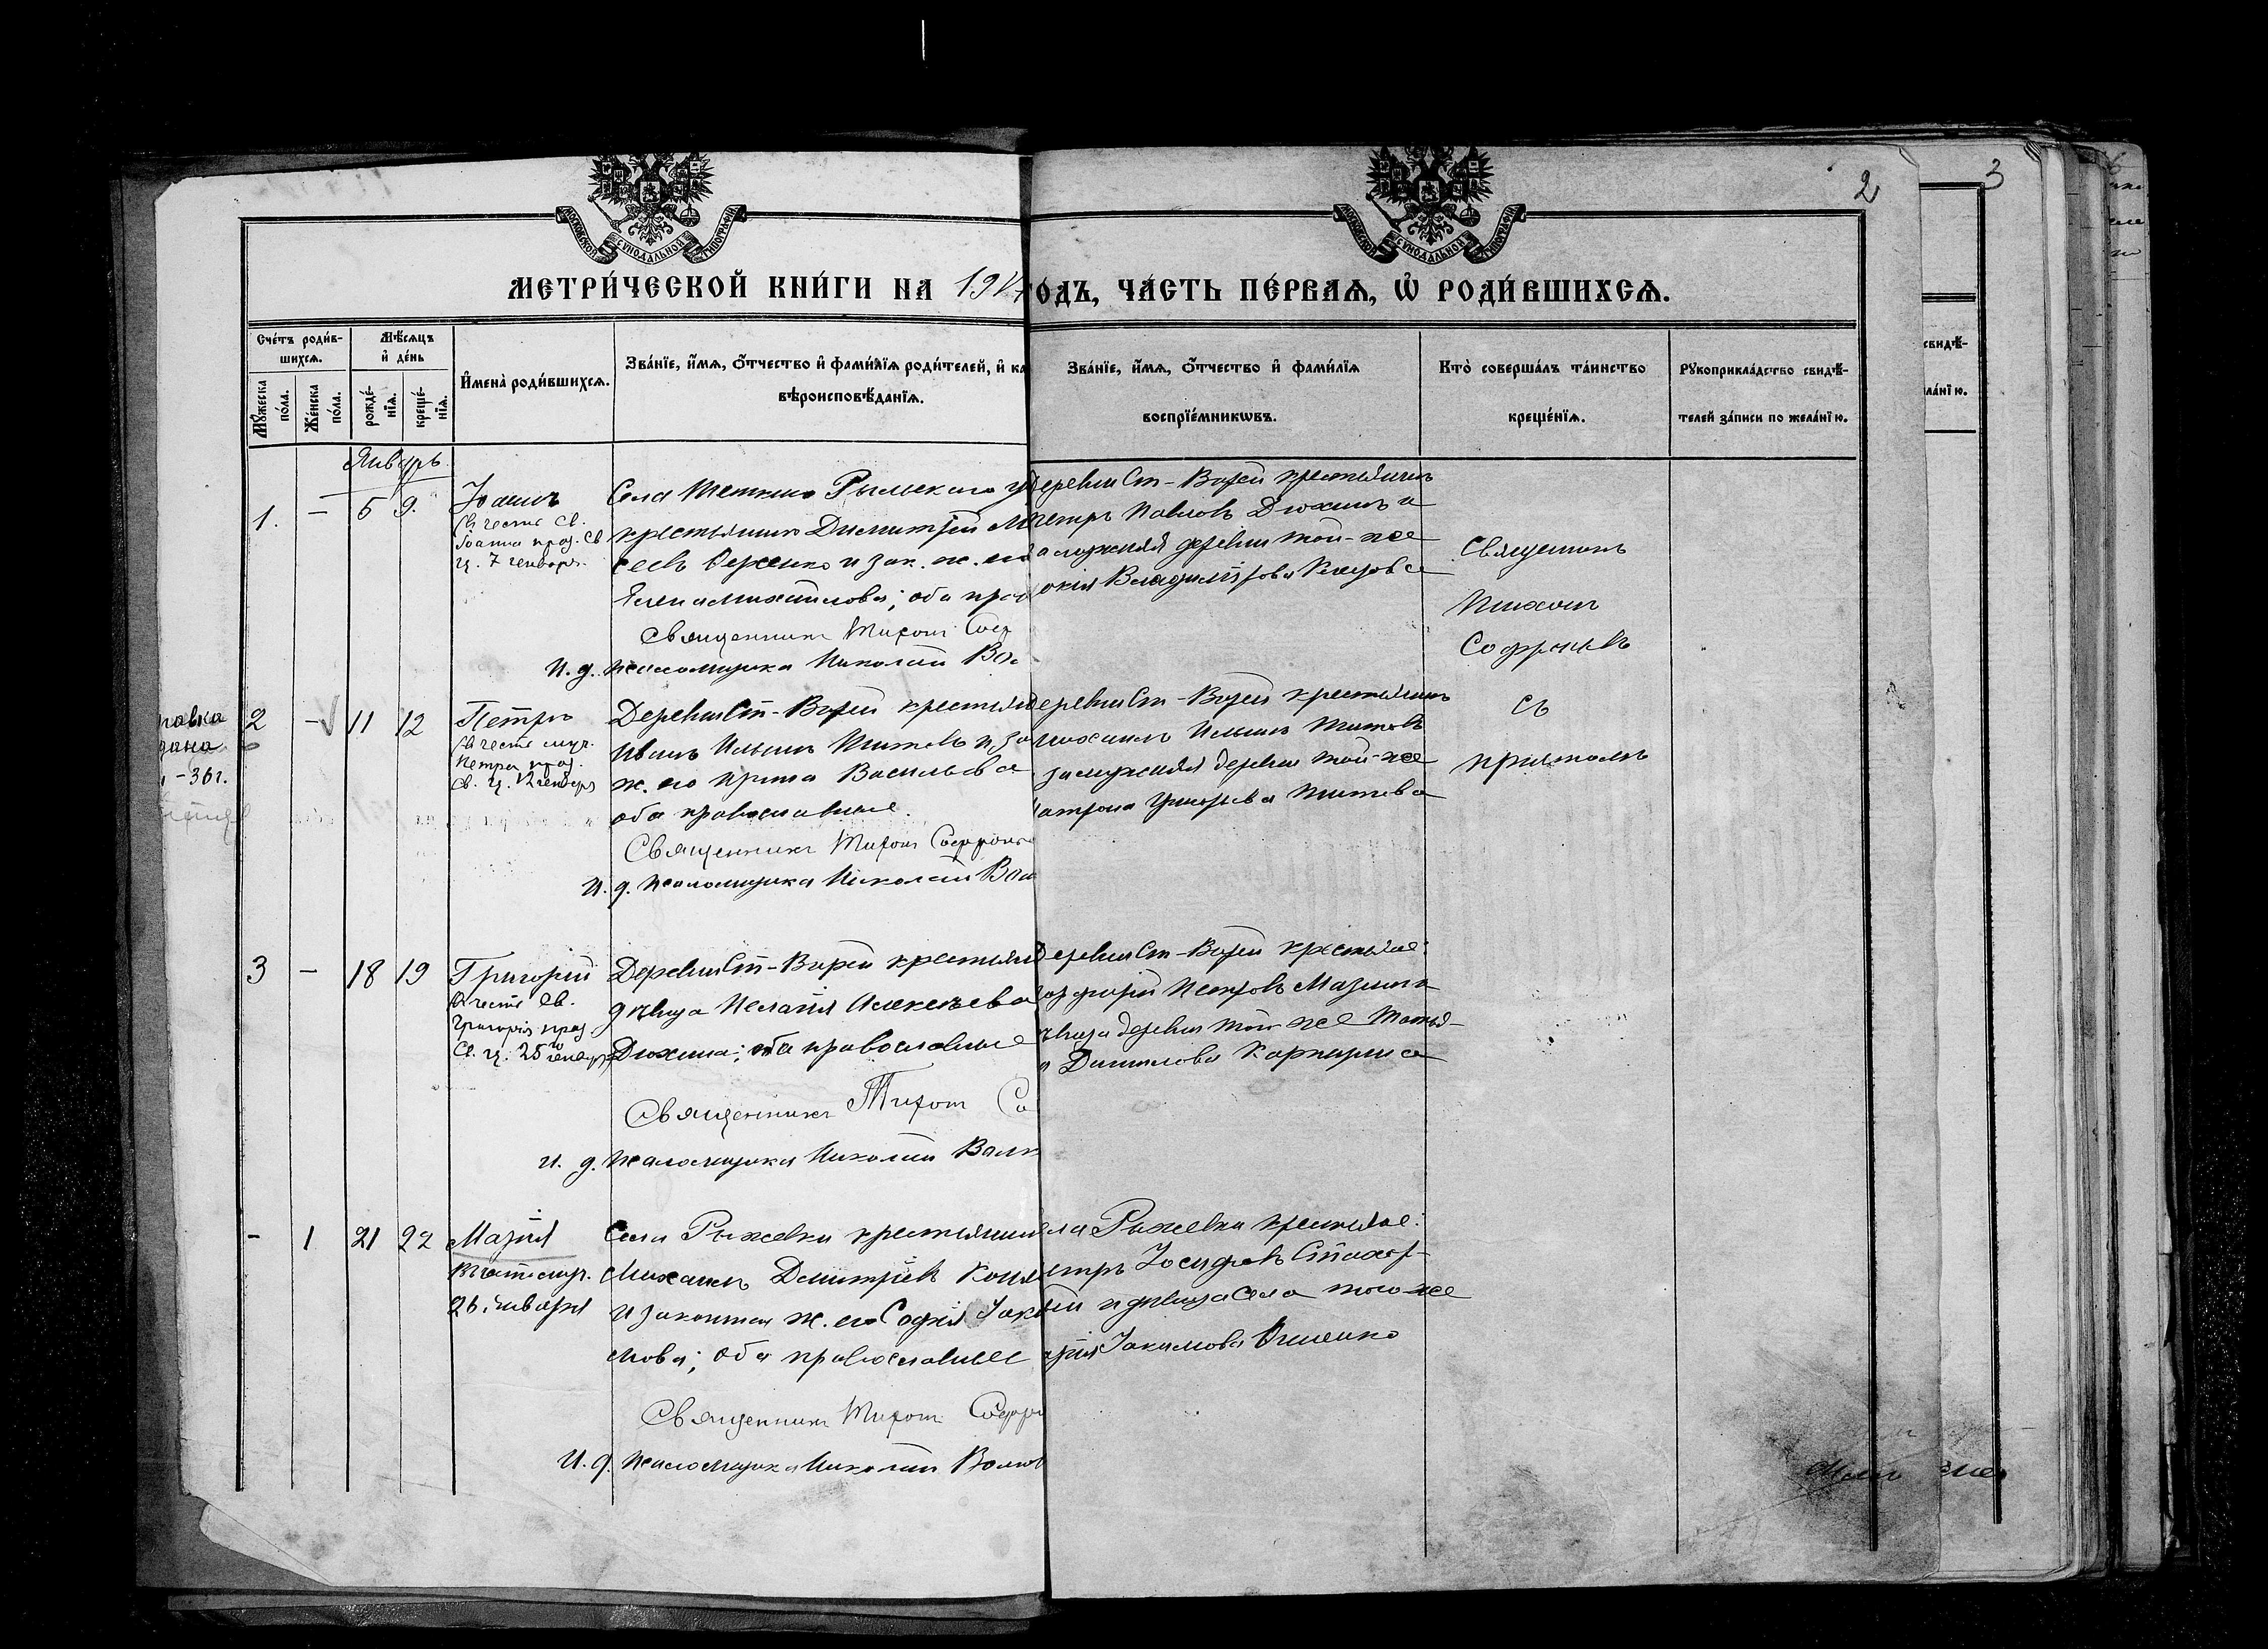 2
3
МОСКОВСКОЙ СѴНОДАЛЬНОЙ ТИПОГРАФІИ
МОСКОВСКОЙ СѴНОДАЛЬНОЙ ТИПОГРАФІИ
МЕТРИ́ЧЕСКОЙ КНИ́ГИ НА 191 ОДЪ, ЧА́СТЬ ПЕ́РВАѦ, Ѽ РОДИ́ВШИХСѦ.
Сче́тъ роди́в-
шихсѧ.
Мꙋ́жеска
по́ла.
Же́нска
по́ла.
Мѣ́сѧцъ
и҆ де́нь
рожде́-
нїѧ.
креще́-
нїѧ.
И҆мена̀ роди́вшихсѧ.
Зва́нїе, и҆́мѧ, ѻ҆́тчество и҆ фами́лїѧ роди́телей, и҆ ка
вѣроисповѣ́данїѧ.
Зва́нїе, и҆́мѧ, ѻ҆́тчество и҆ фами́лїѧ
воспрїе́мникѡвъ.
Кто̀ соверша́лъ та́инство
креще́нїѧ.
Рꙋкоприкла́дство свидѣ́-
телей за́писи по жела́нїю.
свидѣ́-
ла́нїю.
Январь
1. - 5 9.
Іоаннъ
въ честь Св.
Іоанна праз. Св
ц. 7 генваря.
Села Теткино Рыльскаго у
крестьянинъ Димитрій М
сеевъ и зак. ж. его
Елена Михайлова; оба пра
Священникъ Тихон Соф
И. д. псаломщика Николай Вол
деревни Ст-Вирей крестьянинъ
Петръ Павловъ Дюкинъ и
замужняя деревни той-же
окія Владимірова
Священникъ
Тихонъ
Софроневъ
съ
причтомъ
равка
дана
-36г.
2 - 11 12
Петръ
въ честь муч.
Петра праз.
Св. ц. 12 генваря
Деревни Ст-Вирей крестьян
Иванъ Ильинъ Титовъ и за
ж. его Ирина Васильева
оба православные.
Священникъ Тихон Софрон
И. д. псаломщика Николай Вол
еревни Ст-Вирей крестьянинъ
Михаилъ Ильинъ Титовъ
замужняя деревни той-же
Матрона Григорьева Титова
3 - 18 19
Григорій
въ честь Св.
Григорія праз.
Св. ц. 25 генваря
Деревни Ст-Вирей крестьян
дѣвица Пелагія Алексѣева
Дюкина; оба православные
Священникъ Тихон Со
И. д. псаломщика Николай Волк
Деревни Ст-Вирей крестьяне:
Петровъ
ѣвица деревни той же Татья-
а Данилова
- 1 21 22
Марія
въ честь мур.
26. января
Села Рыжевки крестьянин
Михаилъ Димитріевъ
и законная ж. его Софія Іаки
мова; оба православные
Священникъ Тихон Софро
И. д. псаломщика Николай Волков
ела Рыжевки крестьяне:
етръ Іосифовъ
и дѣвица села того-же
арія Іакимова